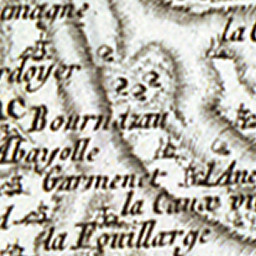 amagne
la C
rdoyer
ac
Bournazau
Abayolle
Garmenet
LAne
la Caux vi
la Fouillarge